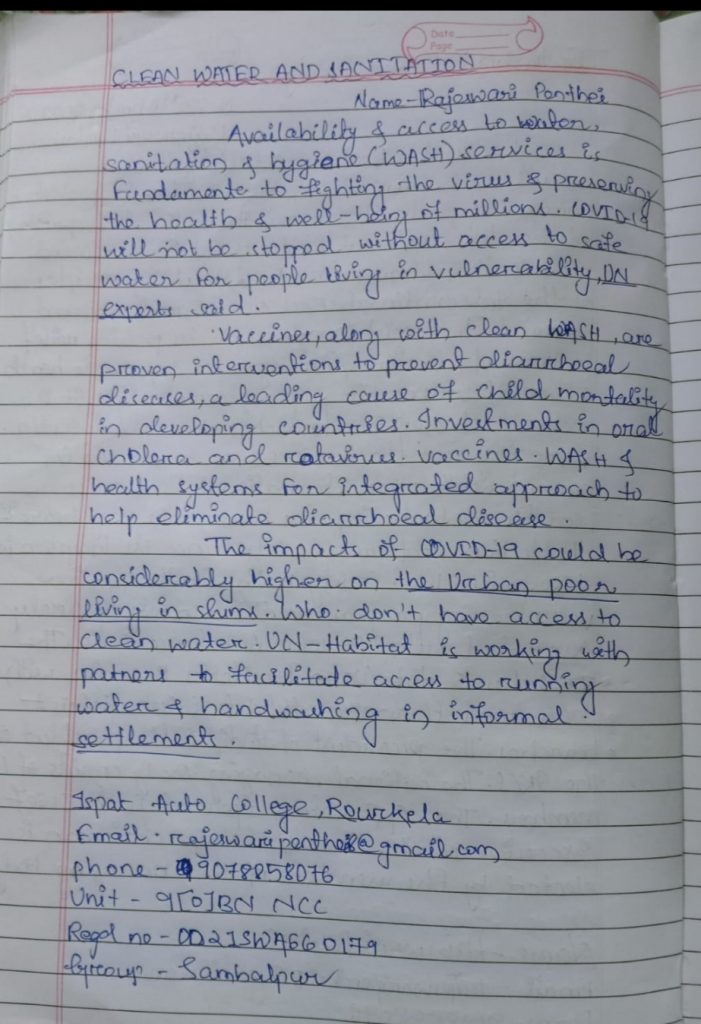 Date
Page
CLEAN WATER AND SANITATION
Name-Rajeswari Panthei
Availability & access to water,
sanitation & hygiene (WASH) services is
fundamente to fighting the virus & preserving
the health & well-being of millions. COVID-19
will not be stopped without access to safe
water for people living in vulnerability, UN
experts said.
Vaccines, along with clean WASH, are
proven interventions to prevent diarrhoeal
diseases, a leading cause of child mortality
in developing countries. Investments in oral
cholera and rotavirus. vaccines. WASH &
health systems for integrated approach to
help eliminate diarrhoeal disease.
The impacts of COVID-19 could be
considerably higher on the Urban poor
living in slums. Who. don't have access to
clean water. UN-Habitat is working with
patners to facilitate access to running
water & handwashing in informal
settlements.
Ispat Auto College, Rourkela
Email. rajeswaripanthei@gmail.com
phone - 9078858076
Unit - 9[O]BN NCC
Regd no - OD21SWA660179
Group - Sambalpur